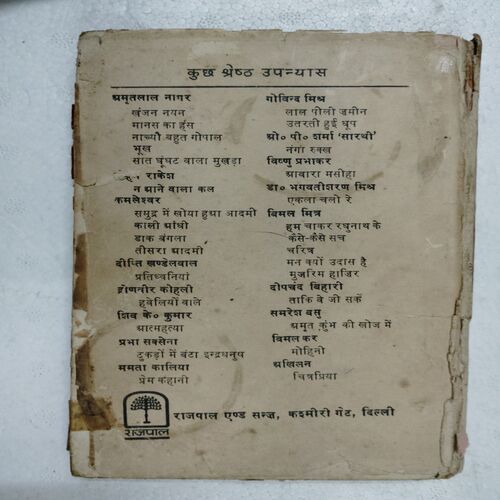 कुछ श्रेष्ठ उपन्यास
अमृतलाल नागर
खंजन नयन
मानस का हंस
नाच्यौ बहुत गोपाल
भूख
सात घूंघट वाला मुखड़ा
राकेश
न आने वाला कल
कमलेश्वर
समुद्र में खोया हुआ आदमी
काली आंधी
डाक बंगला
तीसरा आदमी
दीप्ति खण्डेलवाल
प्रतिध्वनियां
द्रोणवीर कोहली
हवेलियों वाले
शिव के० कुमार
आत्महत्या
प्रभा सक्सेना
टुकड़ों में बंटा इन्द्रधनुष
ममता कालिया
प्रेम कहानी
गोविन्द मिश्र
लाल पीली ज़मीन
उतरती हुई धूप
श्री० पी० शर्मा 'सारथी'
नंगा रुक्ख
विष्णु प्रभाकर
आवारा मसीहा
डा० भगवतीशरण मिश्र
एकला चलो रे
बिमल मित्र
हम चाकर रघुनाथ के
कैसे-कैसे सच
चरित्र
मन क्यों उदास है
मुजरिम हाज़िर
दीपचंद बिहारी
ताकि वे जी सकें
समरेश बसु
अमृत कुंभ की खोज में
बिमल कर
मोहिनी
अखिलन
चित्रप्रिया
राजपाल
राजपाल एण्ड सन्ज़, कश्मीरी गेट, दिल्ली